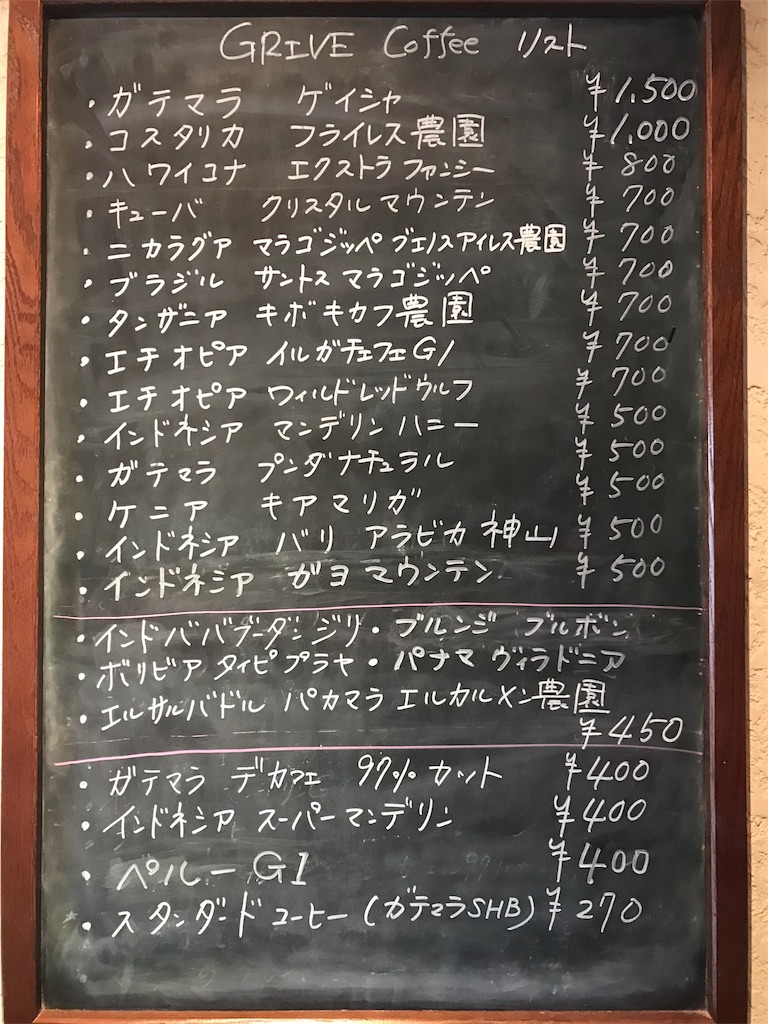 GRIVE Coffee リスト
・ガテマラ ゲイシャ ¥1,500
・コスタリカ フライレス農園 ¥1,000
・ハワイコナ エクストラファンシー ¥800
・キューバ クリスタルマウンテン ¥700
・ニカラグア マラゴジッペブエノスアイレス農園 ¥700
・ブラジル サントスマラゴジッペ ¥700
・タンザニア キボキカフ農園 ¥700
・エチオピア イルガチェフェG1 ¥700
・エチオピア ワィルドレッドウルフ ¥700
・インドネシア マンデリンハニー ¥500
・ガテマラ プンダナチュラル ¥500
・ケニア キアマリガ ¥500
・インドネシア バリ アラビカ神山 ¥500
・インドネシア ガヨマウンテン ¥500
・インドババブーダンジリ・ブルンジ ブルボン
・ボリビアタイピプラヤ・パナマ ヴィラドニア
・エルサルバドル パカマラ エルカルメン農園
¥450
・ガテマラ デカフェ 97%カット ¥400
・インドネシア スーパーマンデリン ¥400
・ペルーG1 ¥400
・スタンダードコーヒー(ガテマラSHB) ¥270